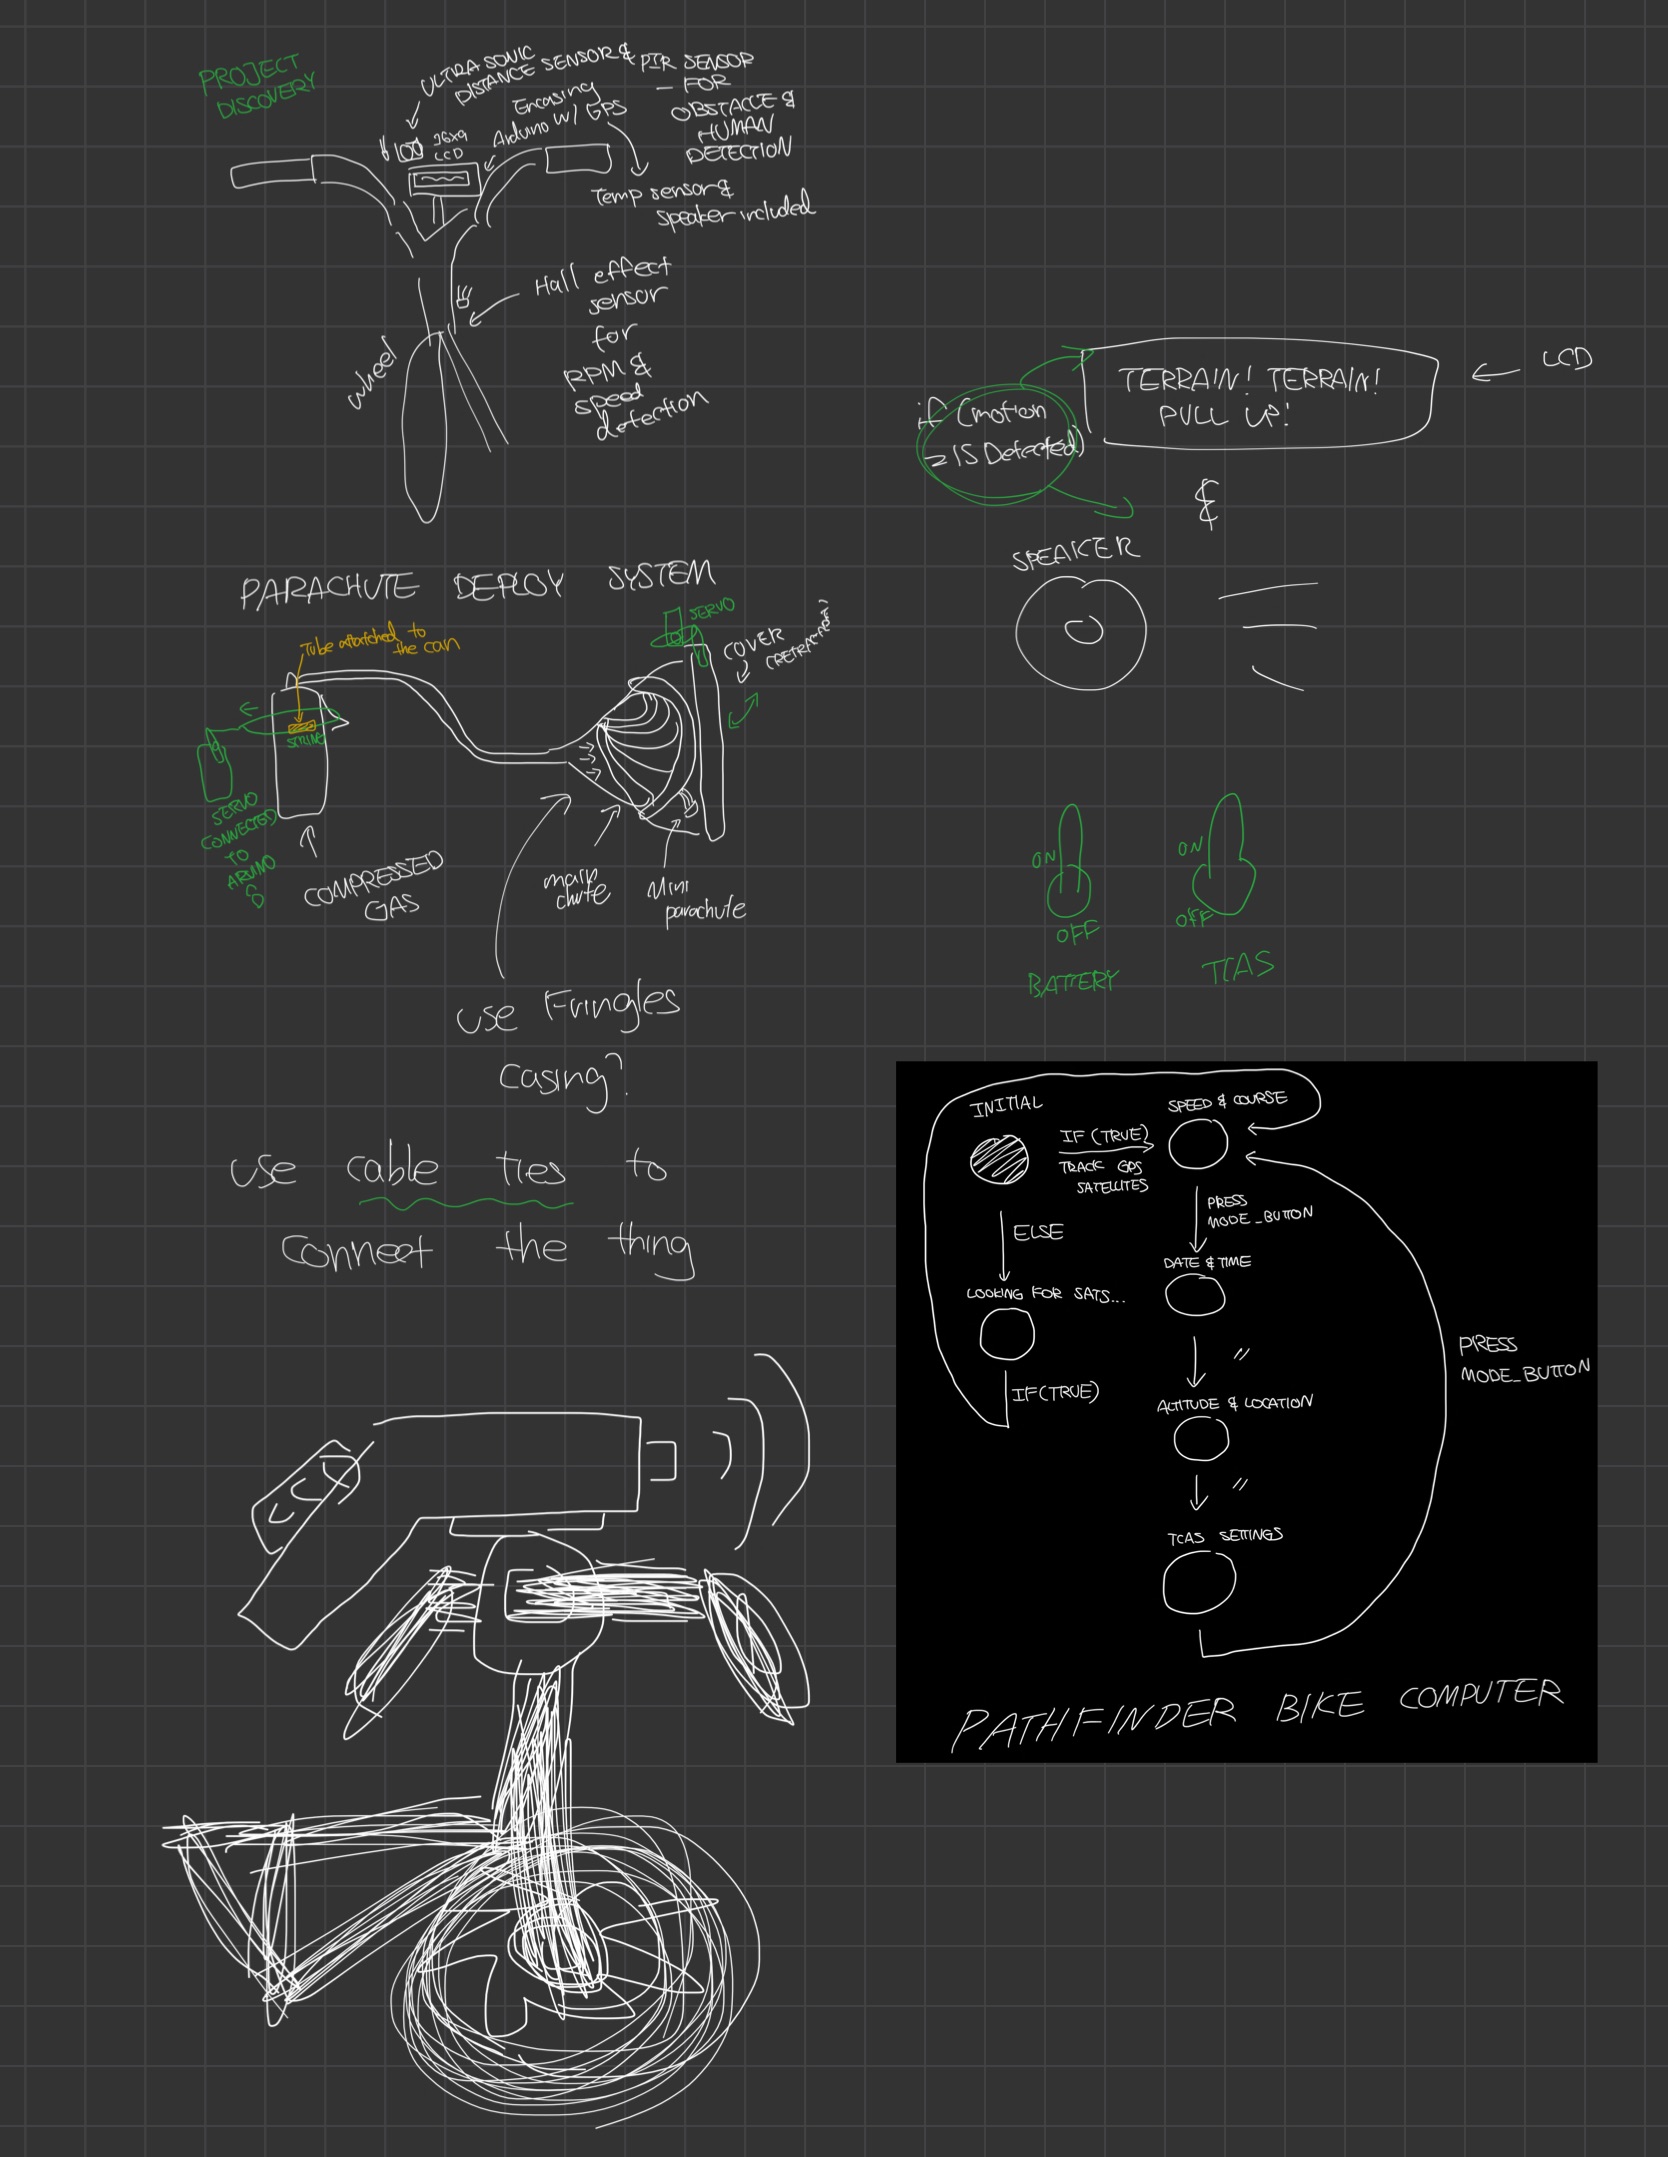 PROJECT
DISCOVERY
ULTRA SONIC
DISTANCE SENSOR &
PIR SENSOR
— FOR
OBSTACLE &
HUMAN
DETECTION
Encasing
Arduino w/ GPS
LCD
Temp sensor &
speaker included
Hall effect
sensor
for
RPM &
speed
detection
wheel
if (motion
= IS Detected)
TERRAIN! TERRAIN!
PULL UP!
← LCD
&
SPEAKER
PARACHUTE DEPLOY SYSTEM
Tube attatched to
the can
SERVO
COVER
STRING
SERVO
CONNECTED
TO
COMPRESSED
GAS
main
chute
Mini
parachute
use Fringles
casing?
use cable ties to
connect the thing
ON
OFF
BATTERY
ON
OFF
TCAS
INITIAL
IF (TRUE)
TRACK GPS
SATELLITES
SPEED & COURSE
ELSE
PRESS
MODE_BUTTON
LOOKING FOR SATS...
IF(TRUE)
DATE & TIME
"
ALTITUDE & LOCATION
"
TCAS SETTINGS
PRESS
MODE_BUTTON
PATHFINDER BIKE COMPUTER